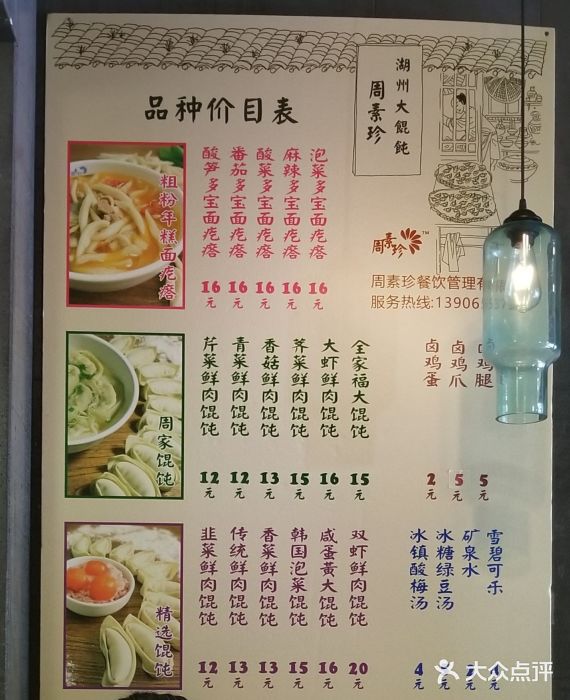 湖州大餛飩
周素珍
品种价目表
粗粉年糕面疙瘩
酸笋多宝面疙瘩 16元
番茄多宝面疙瘩 16元
酸菜多宝面疙瘩 16元
麻辣多宝面疙瘩 16元
泡菜多宝面疙瘩 16元
周素珍 TM
周素珍餐饮管理有
服务热线:13906
周家馄饨
芹菜鲜肉馄饨 12元
青菜鲜肉馄饨 12元
香菇鲜肉馄饨 13元
荠菜鲜肉馄饨 15元
大虾鲜肉馄饨 16元
全家福大馄饨 15元
卤鸡蛋 2元
卤鸡爪 5元
卤鸡腿 5元
精选馄饨
韭菜鲜肉馄饨 12元
传统鲜肉馄饨 13元
香菜鲜肉馄饨 13元
韩国泡菜馄饨 15元
咸蛋黄大馄饨 16元
双虾鲜肉馄饨 20元
冰镇酸梅汤 4元
冰糖绿豆汤
矿泉水
雪碧可乐
大众点评